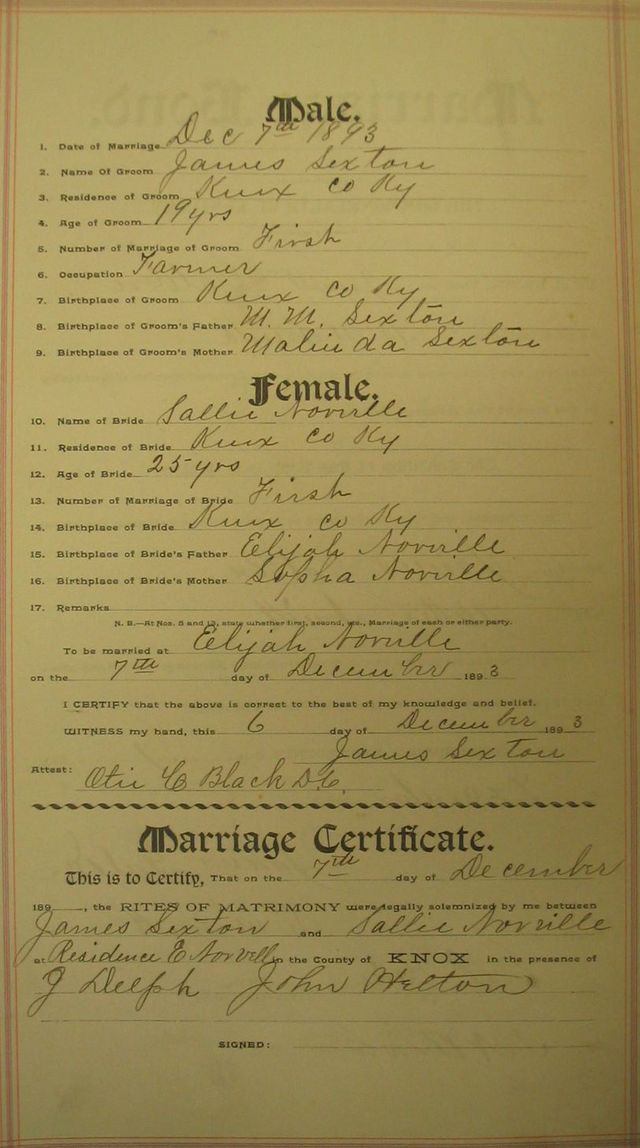 Male.
1. Date of Marriage Dec 7th 1893
2. Name Of Groom James Sexton
3. Residence of Groom Knox co Ky
4. Age of Groom 19 yrs
5. Number of Marriage of Groom First
6. Occupation Farmer
7. Birthplace of Groom Knox co Ky
8. Birthplace of Groom's Father M. M. Sexton
9. Birthplace of Groom's Mother Malinda Sexton
Female.
10. Name of Bride Sallie Norville
11. Residence of Bride Knox co Ky
12. Age of Bride 25 yrs
13. Number of Marriage of Bride First
14. Birthplace of Bride Knox co Ky
15. Birthplace of Bride's Father Elijah Norville
16. Birthplace of Bride's Mother Sopha Norville
17. Remarks
N. B.—At Nos. 5 and 13, state whether first, second, etc., Marriage of each or either party.
To be married at Elijah Norville
on the 7th day of December 1893
I CERTIFY that the above is correct to the best of my knowledge and belief.
WITNESS my hand, this 6 day of December 1893
James Sexton
Attest: Otis C Black D.C.
Marriage Certificate.
This is to Certify, That on the 7th day of December
189 , the RITES OF MATRIMONY were legally solemnized by me between
James Sexton and Sallie Norville
at Residence E Norvell in the County of KNOX in the presence of
J Delph John Helton
SIGNED: